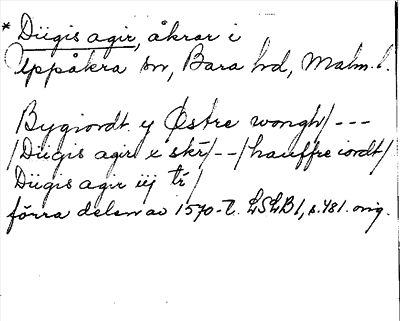 * Diigis agir, åkrar i
Uppåkra sn, Bara hd, Malm. l.
Bygiordt y Østre wongh/ ---
/Diigis agir x skr/--/hauffre iordt/
Diigis agir iij tr/
förra delen av 1570-t. LSLB1, s. 481. orig.